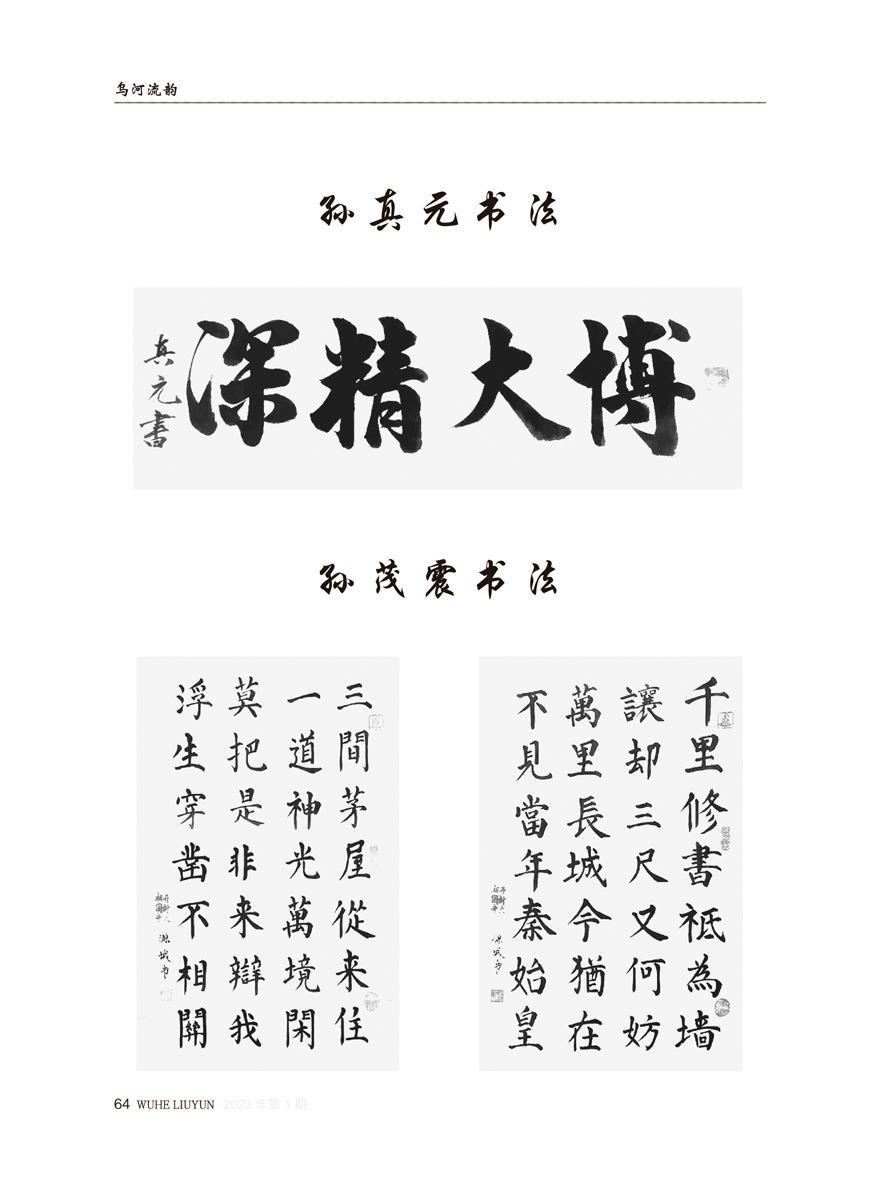 乌河流韵
孙真元书法
博大精深
真元書
孙茂震书法
三間茅屋從来住
一道神光萬境閑
莫把是非来辯我
浮生穿凿不相關
千里修書祗為墙
讓却三尺又何妨
萬里長城今猶在
不見當年秦始皇
64 WUHE LIUYUN 2023 年第 1 期